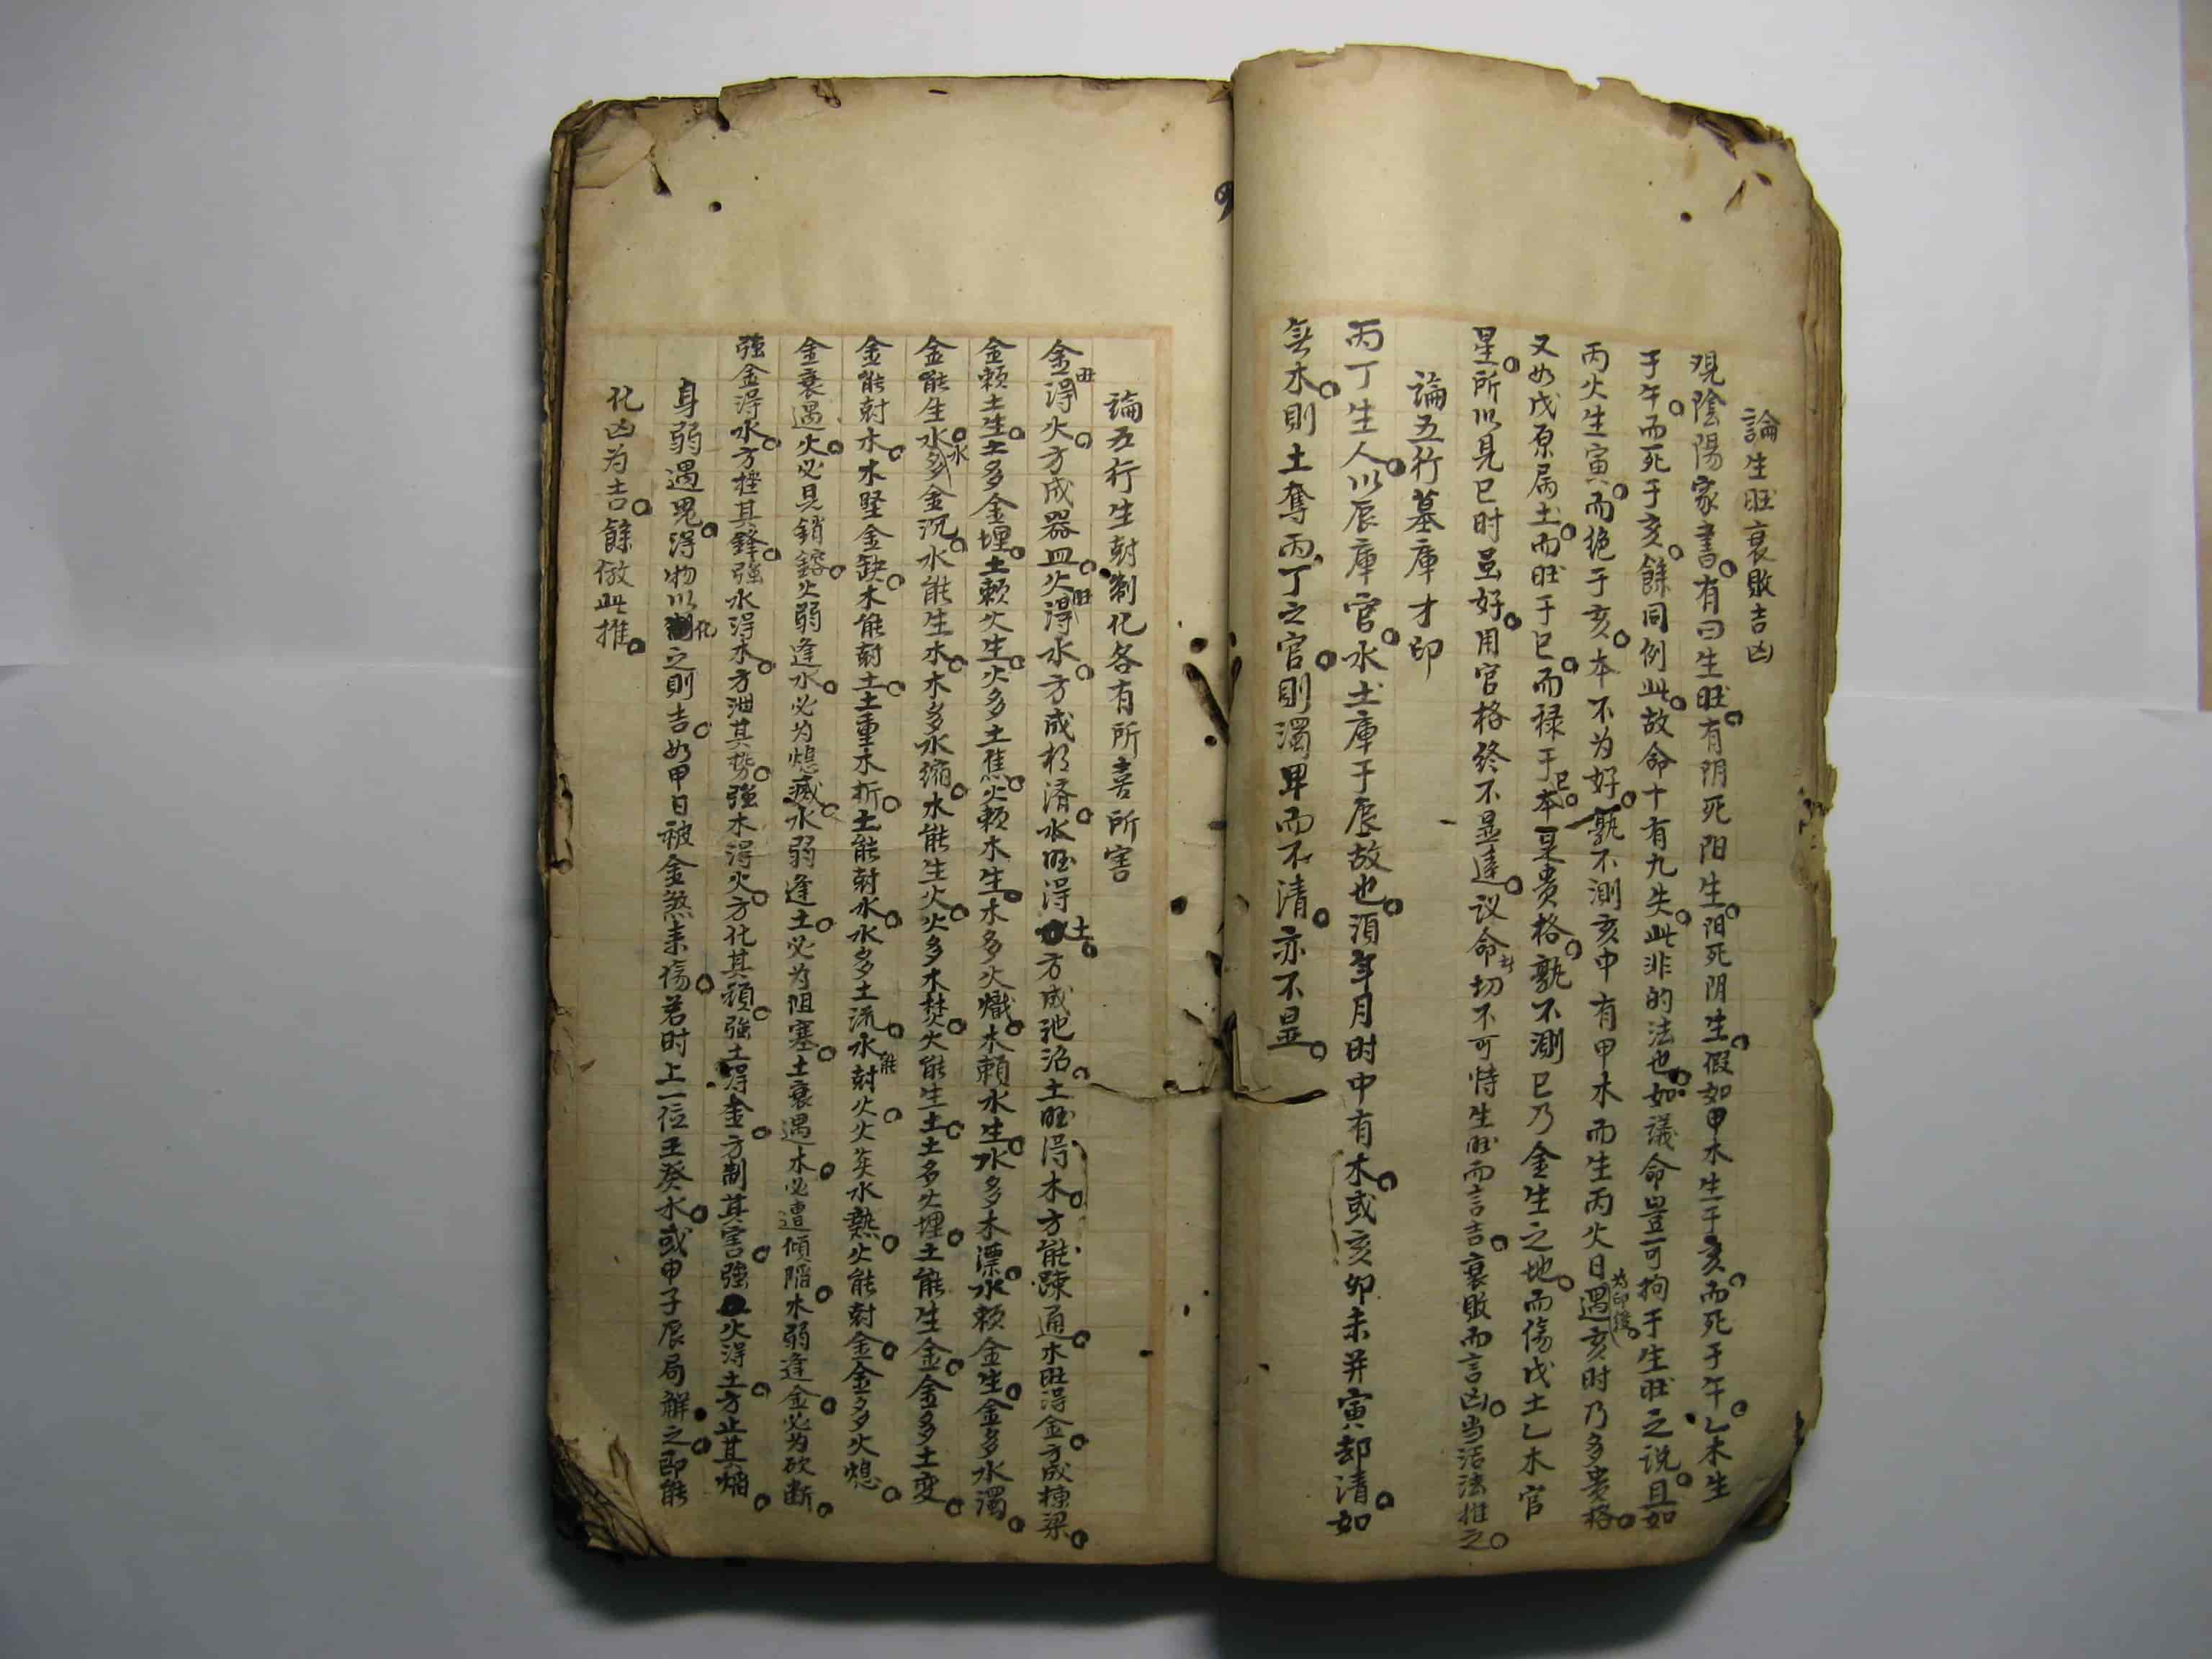 論生旺衰敗吉凶
观陰陽家書有曰生旺有阴死阳生阳死阴生假如甲木生于亥而死于午乙木生
于午而死于亥餘同例此故命十有九失此非的法也如議命豈可拘于生旺之说且如
丙火生寅而绝于亥本不为好孰不測亥中有甲木而生丙火日遇亥时为印绶乃多贵格
又如戊原属土而旺于巳而禄于巳本是贵格孰不測巳乃金生之地而傷戊土乙木官
星所以見巳时虽好用官格终不显達议命切不可恃生旺而言吉衰敗而言凶当活法推之
論五行墓庫才印
丙丁生人以辰庫官水土庫于辰故也須年月时中有木或亥卯未并寅却清如
無木則土奪丙丁之官則濁卑而不清亦不显
論五行生尅制化各有所喜所害
金旺得火方成器皿火旺得水方成相济水旺得土方成池沼土旺得木方能疎通木旺得金方成棟梁
金賴土生土多金埋土賴火生火多土焦火賴木生木多火熾木賴水生水多木漂水賴金生金多水濁
金能生水水多金沉水能生木木多水缩木能生火火多木焚火能生土土多火埋土能生金金多土变
金能尅木木堅金缺木能尅土土重木折土能尅水水多土流水能尅火火炎水熱火能尅金金多火熄
金衰遇火必見銷鎔火弱逢水必为熄滅水弱逢土必为阻塞土衰遇木必遭傾陷木弱逢金必为砍断
強金得水方挫其鋒強水得木方泄其势強木得火方化其頑強土得金方制其害強火得土方止其焰
身弱遇鬼得物以化之則吉如甲日被金煞来傷若时上一位壬癸水或申子辰局解之即能
化凶为吉餘倣此推